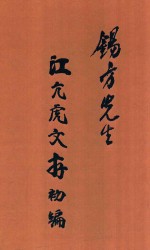 錫方先生
江亢虎文存初編